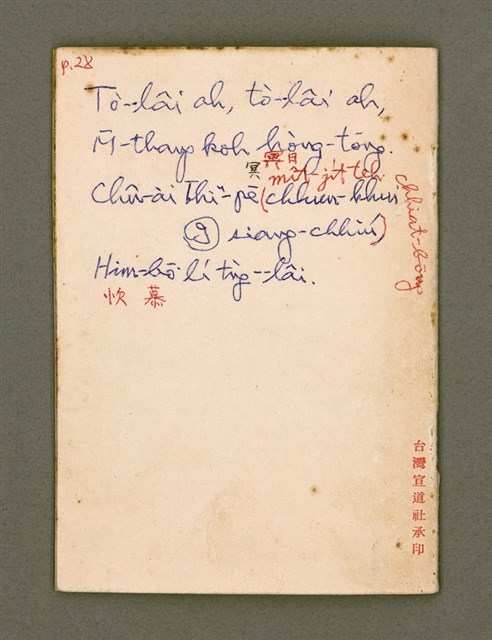 p.28
Tò--lâi ah, tò-lâi ah,
M̄-thang koh hòng-tōng.
冥 冥日
mî-ji̍t teh
Chû-ài Thiⁿ-pē (chhun-khui
⑨ siang-chhiú)
chhiat-bōng
Him-bō͘ lí tńg--lâi.
欣 慕
台灣宣道社承印